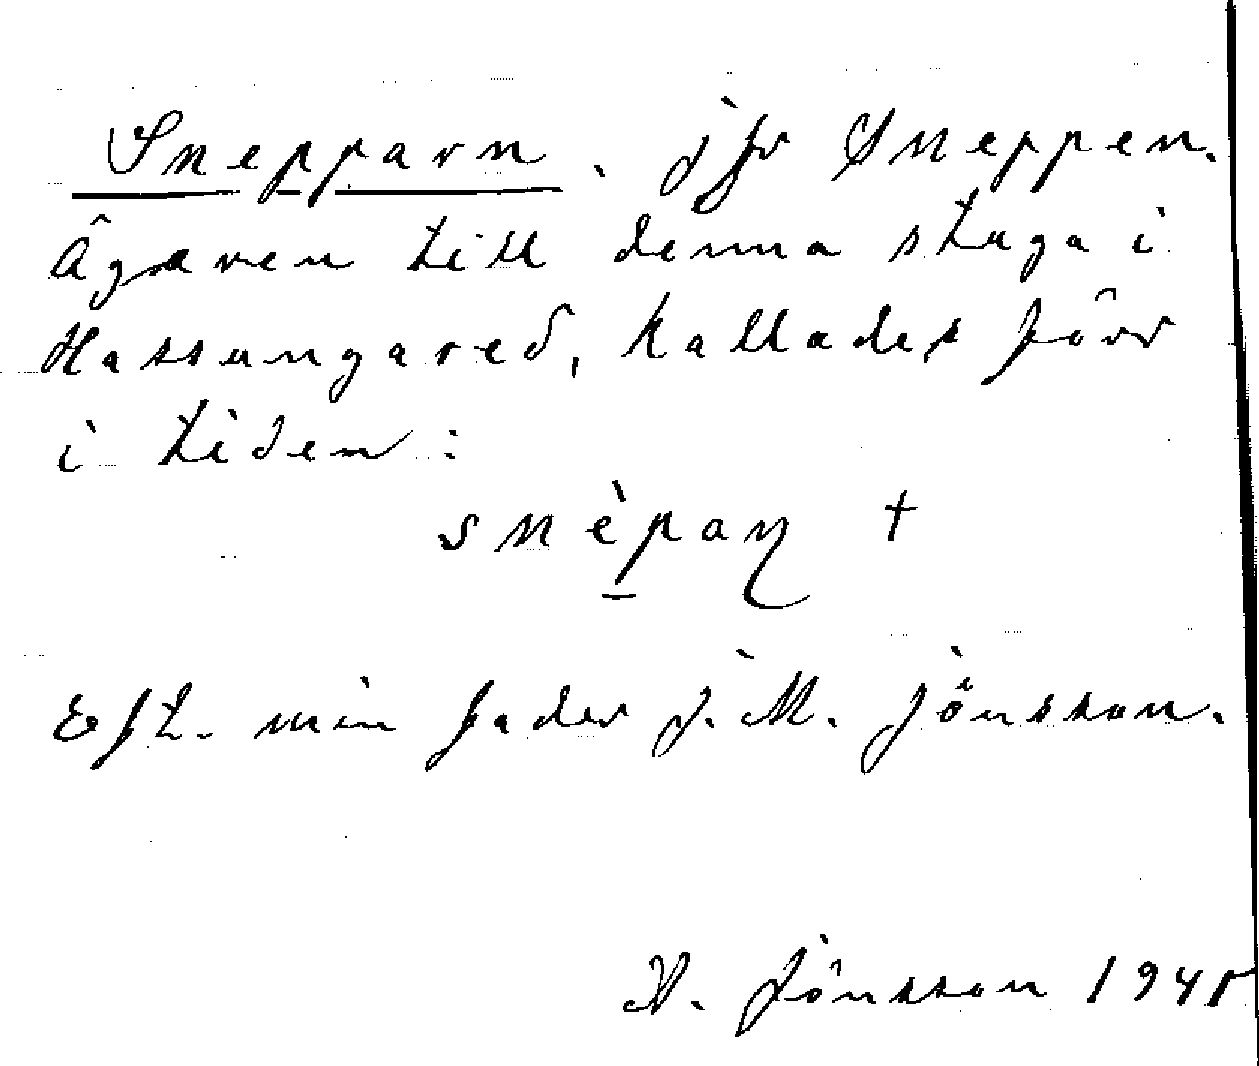 Snepparn. jfr Sneppen.
Ägaren till denna stuga i
Hassungared, kallades förr
i tiden:
snèpaɳ †
Eft. min fader J. M. Jönsson.
N. Jönsson 194